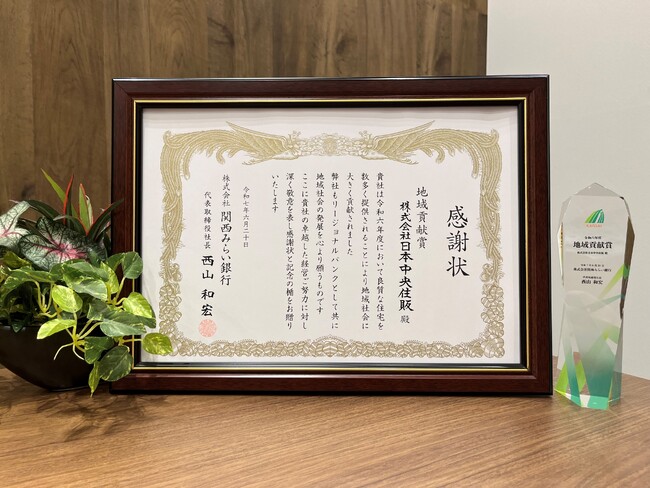 感謝状
地域貢献賞
株式会社日本中央住販 殿
貴社は令和六年度において良質な住宅を
数多く提供されることにより地域社会に
大きく貢献されました
弊社もリージョナルバンクとして共に
地域社会の発展を心より願うものです
ここに貴社の卓越した経営ご努力に対し
深く敬意を表し感謝状と記念の楯をお贈り
いたします
令和七年六月二十日
株式会社 関西みらい銀行
代表取締役社長 西山 和宏
地域貢献賞
西山 和宏